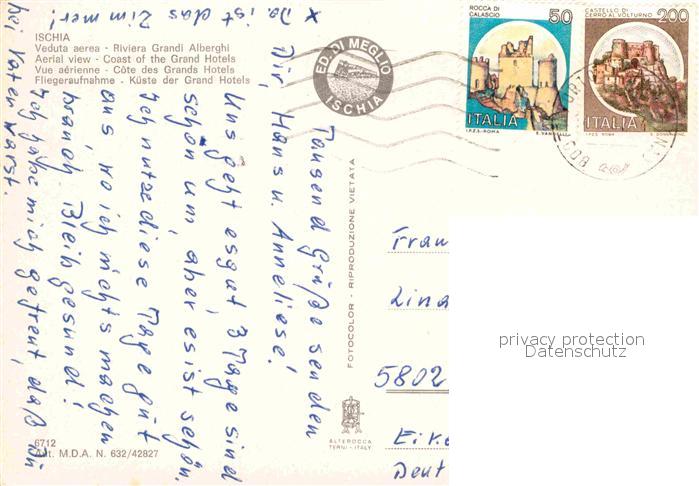 x Da ist das Zimmer!
ISCHIA
Veduta aerea - Riviera Grandi Alberghi
Aerial view - Coast of the Grand Hotels
Vue aérienne - Côte des Grands Hotels
Fliegeraufnahme - Küste der Grand Hotels
ED. DI MEGLIO
ISCHIA
ROCCA DI
CALASCIO
50
ITALIA
I.P.Z.S. - ROMA
CASTELLO DI
CERRO AL VOLTURNO
200
ITALIA
I.P.Z.S. ROMA
Tausend Grüße senden
Dir, Hans u. Anneliese!
Uns geht es gut 3 Tage sind
schon um, aber es ist schön.
Ich nutze diese Tage gut
aus, wo ich nichts machen
brauch. Bleib gesund!
Ich habe mich gefreut, daß Du
bei Vatern warst.
FOTOCOLOR - RIPRODUZIONE VIETATA
ALTEROCCA
TERNI - ITALY
6712
Aut. M.D.A. N. 632/42827
Frau
Lina
5802
Deut
privacy protection
Datenschutz